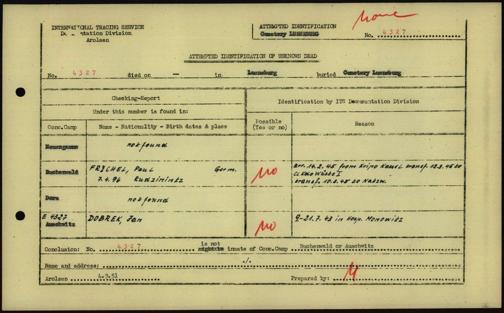 INTERNATIONAL TRACING SERVICE
Documentation Division
Arolsen
ATTEMPTED IDENTIFICATION
Cemetery LUNEBURG
No. 4327
none
ATTEMPTED IDENTIFICATION OF UNKNOWN DEAD
No. 4327 died on - in Luneburg buried Cemetery Luneburg
Checking-Report
Under this number is found in:
Identification by ITS Documentation Division
Conc.Camp
Name - Nationality - Birth dates & place
Possible
(Yes or no)
Reason
Neuengamme
not found
Buchenwald
FRISCHEL, Paul Germ.
7.4.96
no
arr. 14.2.45 from
transf. 12.3.45 to
Dora
not found
E 4327
Auschwitz
DOBREK, Jan
no
9-21.7.43 in Hosp. Monowitz
Conclusion: No. 4327 is not inmate of Conc.Camp Buchenwald or Auschwitz
Name and address: ./.
Arolsen 4.9.51 Prepared by: